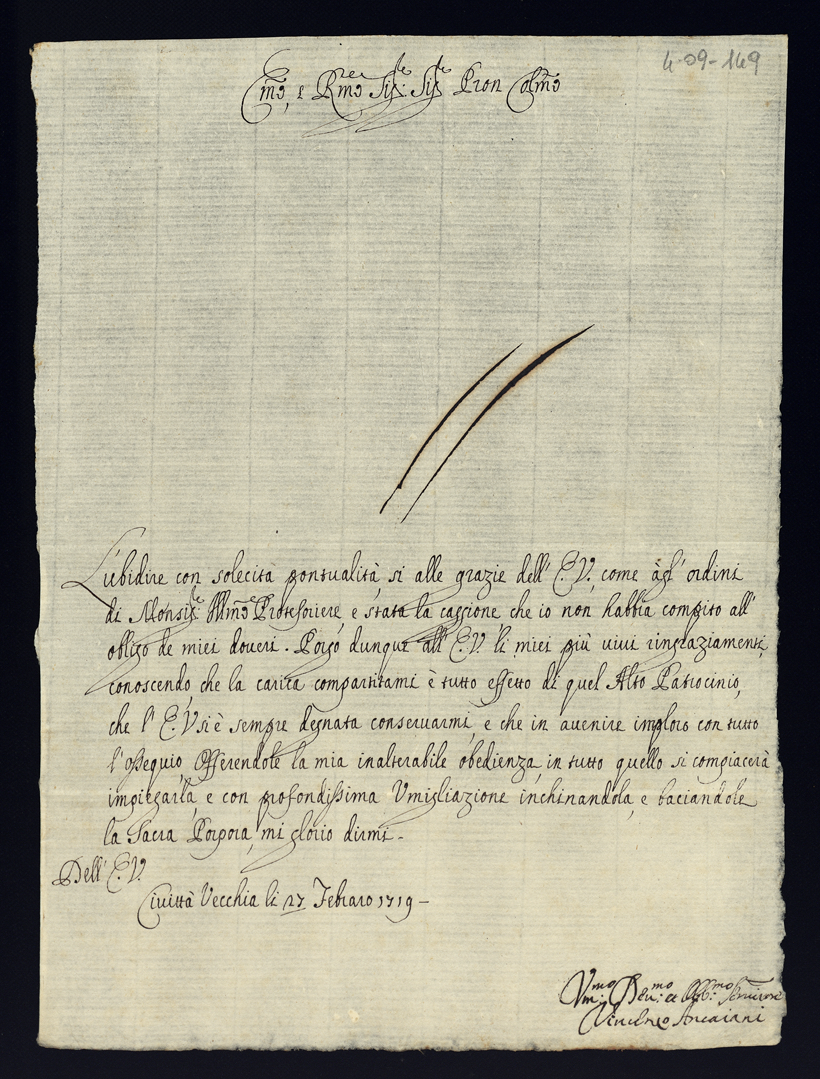 4-09-149
Emo, e Rmo Sigre: Sigre Pron Colmo
L'ubidire con solecità pontualità, si alle grazie dell' E.V. come agl' ordini
di Monsigre Illmo Protesoriere, e stata la caggione che io non habbia compito all'
obligo de miei doveri. Porgo dunque all' E.V. li miei più vivi ringraziamenti,
conoscendo che la carica compartitami è tutto effetto di quel Alto Patrocinio,
che l' E.V. si è sempre degnata conservarmi, e che in avenire imploro con tutto
l'ossequio, Offerendole la mia inalterabile obedienza in tutto quello si compiacerà
impiegarla, e con profondissima Umigliazione inchinandola, e baciandole
la Sacra Porpora, mi glorio dirmi -
Dell' E.V.
Civittà Vecchia li 27 Febraro 1719 -
Vmo: Devmo: et Obbmo: Servitore
Vincenzo Ancaiani